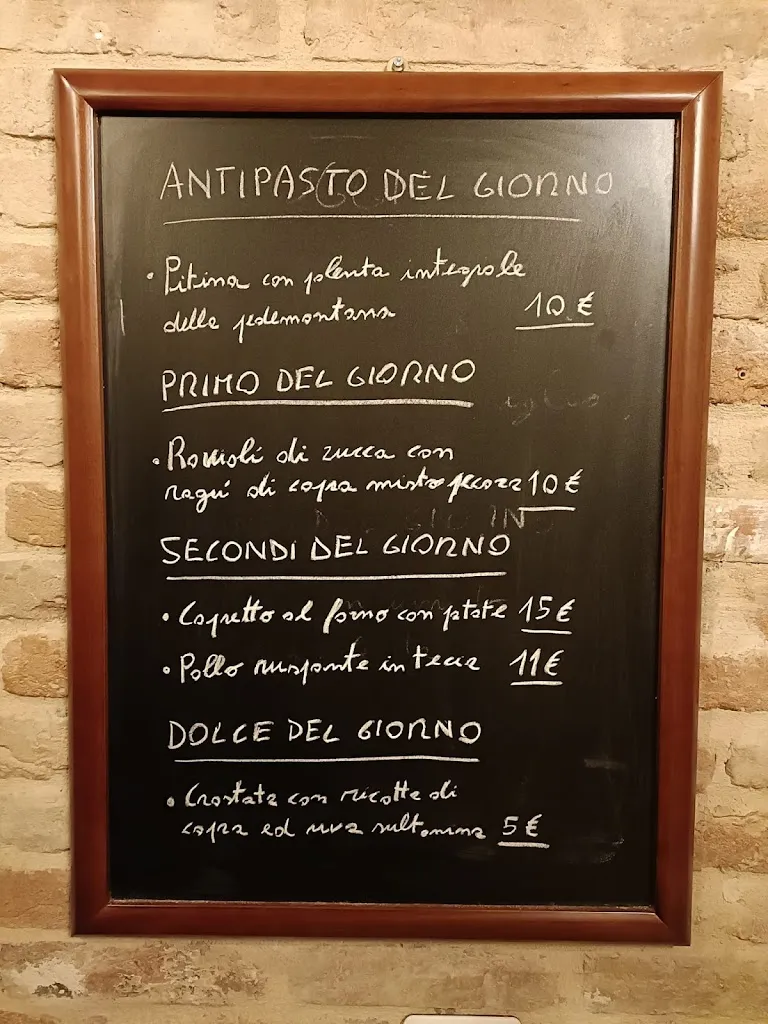 ANTIPASTO DEL GIORNO
• Pitina con plenta integrale
della pedemontana 10 €
PRIMO DEL GIORNO
• Ravioli di zucca con
ragú di capra misto pecora 10 €
SECONDI DEL GIORNO
• Capretto al forno con patate 15 €
• Pollo ruspante in tecia 11 €
DOLCE DEL GIORNO
• Crostata con ricotta di
capra ed uva sultanina 5 €